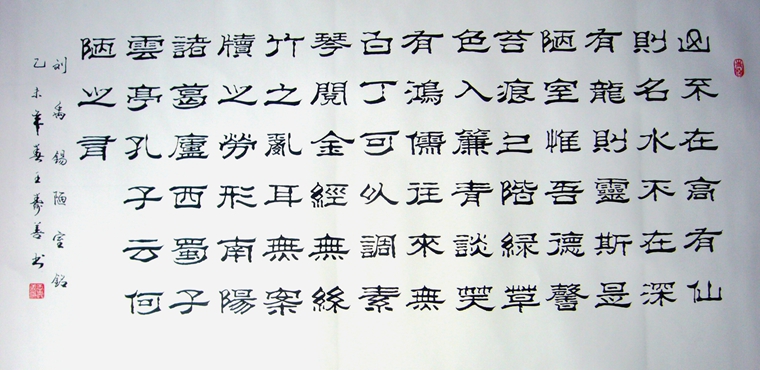 山不在高有仙
則名水不在深
有龍則靈斯是
陋室惟吾德馨
苔痕上階綠草
色入簾青談笑
有鴻儒往來無
白丁可以調素
琴閱金經無絲
竹之亂耳無案
牘之勞形南陽
諸葛廬西蜀子
雲亭孔子云何
陋之有
刘禹錫陋室銘
乙未年春王善书